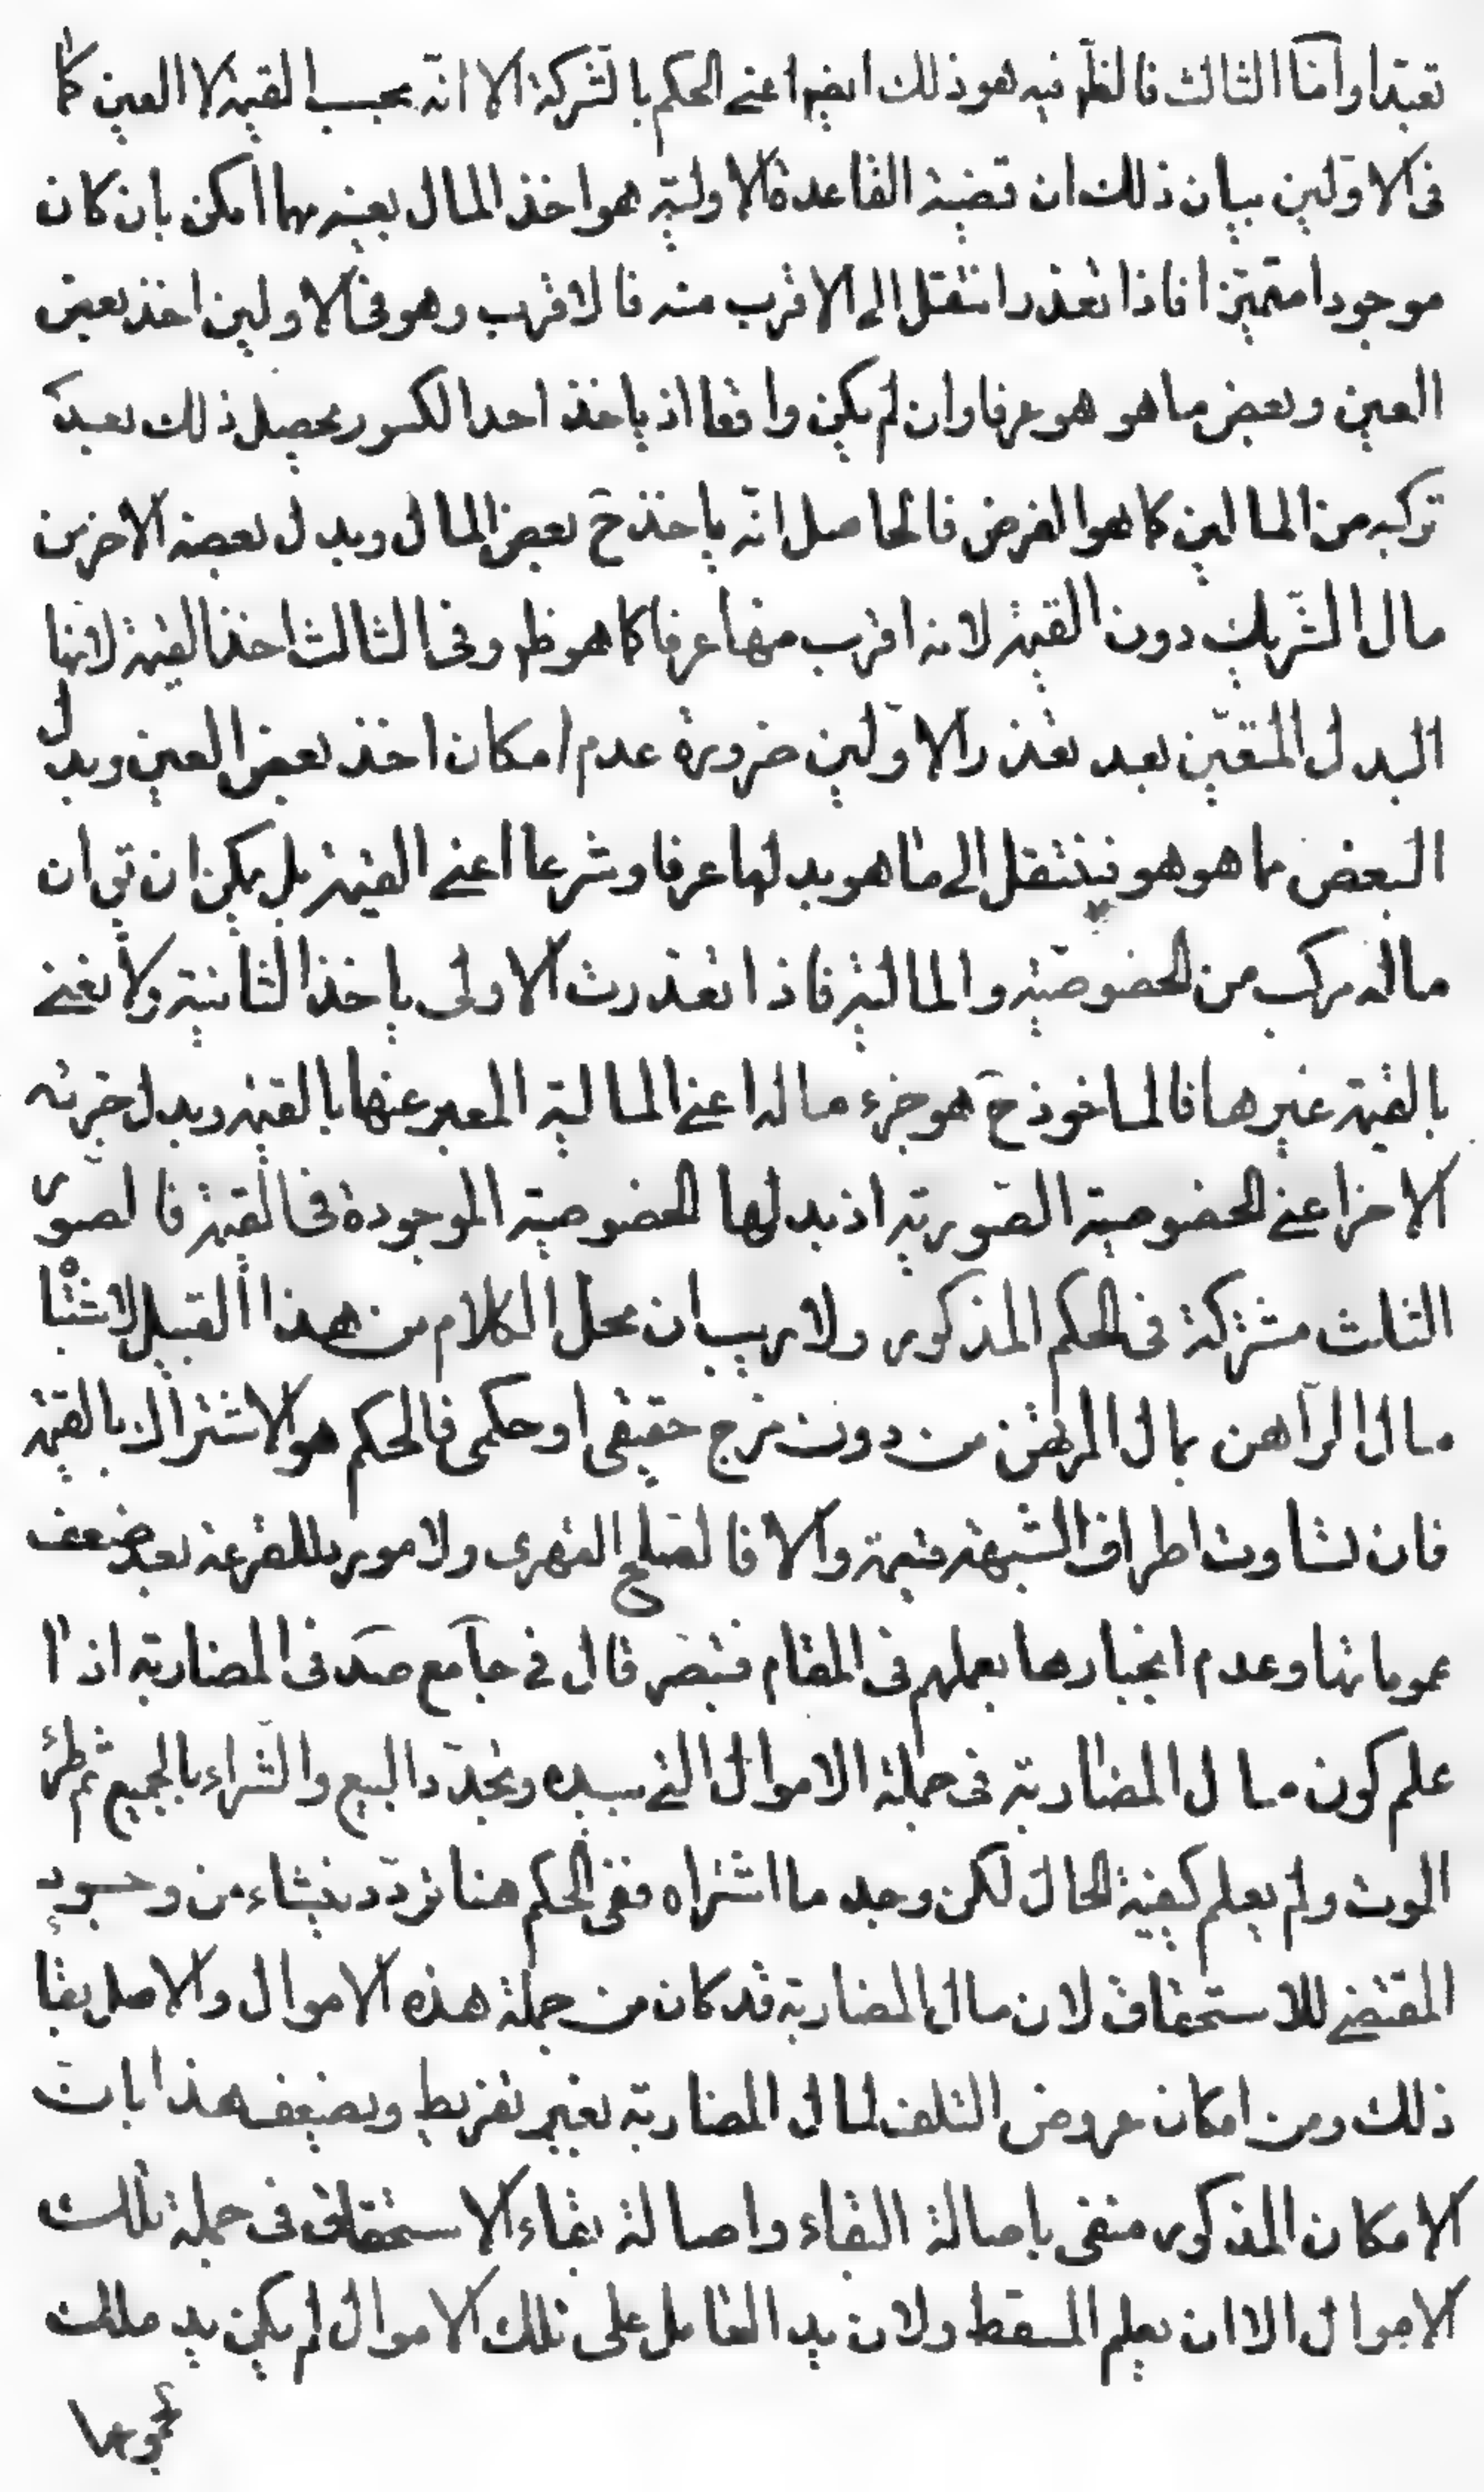 تعبّدا وامّا الثالث فالظّ فيه هو ذلك ايضا اعنى الحكم بالشّركة الا انّه بحسب القيمة لا العين كما
فى الاوّلين بيان ذلك ان قضية القاعدة الاوليّة هو اخذ المال بعينه مهما امكن بان كان
موجودا متميّزا فاذا تعذر انتقل الى الاقرب منه فالاقرب وهو فى الاولين اخذ بعض
العين وبعض ما هو هو عرفا وان لم يكن واقعا اذ ياخذ احد الكسور بحصيل ذلك بعد
تركبه من المالين كما هو الفرض فالحاصل انّه ياخذ ح بعض المال وبدل بعضه الاخر من
مال الشّريك دون القيمة لانه اقرب منها عرفا كما هو ظ وفى الثالث اخذ القيمة لانها
البدل المتعيّن بعد تعذر الاوّلين ضرورة عدم امكان اخذ بعض العين وبدل
البعض مما هو هو فينتقل الى ما هو بدلها عرفا وشرعا اعنى القيمة بل يمكن ان تق ان
ماله مركب من الخصوصيّة والماليّة فاذا تعذرت الاولى ياخذ الثانية ولا نعنى
بالقيمة غيرها فالماخوذ ح هو جزء ماله اعنى الماليّة المعبر عنها بالقيمة وبدل جزئه
الاخر اعنى الخصوصية الصّوريّة اذ بدلها الخصوصية الموجودة فى القيمة فالصور
الثلث مشتركة فى الحكم المذكور ولا ريب ان محل الكلام من هذا القبيل لاشتباه
مال الرّاهن بمال المرتهن من دون مزج حقيقى او حكمى فالحكم هو الاشتراك بالقيمة
فان تساوت اطراف الشّبهة قيمة والا فالصّلح القهرى ولا مورد للقرعة بعد ضعف
عموماتها وعدم انجبارها بعملهم فى المقام فتبصّر قال فى جامع صد فى المضاربة اذا
علم كون مال المضاربة فى جملة الاموال التى بيده وتجدّد البيع والشّراء بالجميع ثم طرء
الموت ولم يعلم كيفية الحال لكن وجد ما اشتراه ففى الحكم هنا تردّد ينشاء من وجود
المقتضى للاستحقاق لان مال المضاربة قد كان من جملة هذه الاموال والاصل بقاء
ذلك ومن امكان عروض التلف لمال المضاربة بغير تفريط ويضعف هذا بان
الامكان المذكور منفى باصالة البقاء واصالة بقاء الاستحقاق فى جملة تلك
الاموال الا ان يعلم المسقط ولان يد العامل على تلك الاموال لم يكن يد ملك